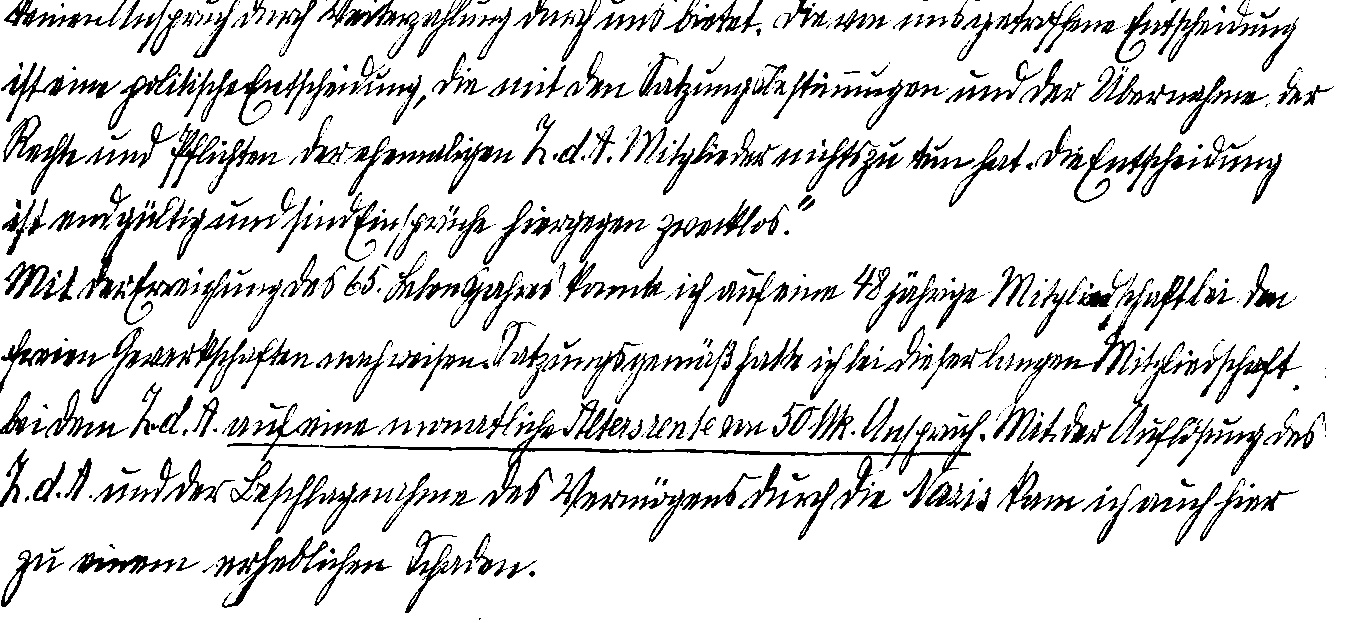 keinen Anspruch durch Weiterzahlung durch uns bietet. Die von uns getroffene Entscheidung
ist eine politische Entscheidung, die mit den Satzungsbestimmungen und der Übernahme der
Rechte und Pflichten der ehemaligen Z.d.A. Mitglieder nichts zu tun hat. Die Entscheidung
ist endgültig und sind Einsprüche hiergegen zwecklos."
Mit der Erreichung des 65. Lebensjahres konnte ich auf eine 48 jährige Mitgliedschaft bei den
freien Gewerkschaften nachweisen. Satzungsgemäß hatte ich bei dieser langen Mitgliedschaft
bei dem Z.d.A. auf eine monatliche Altersrente von 50 Mk. Anspruch. Mit der Auflösung des
Z.d.A. und der Beschlagnahme des Vermögens durch die Nazis kam ich auch hier
zu einem erheblichen Schaden.